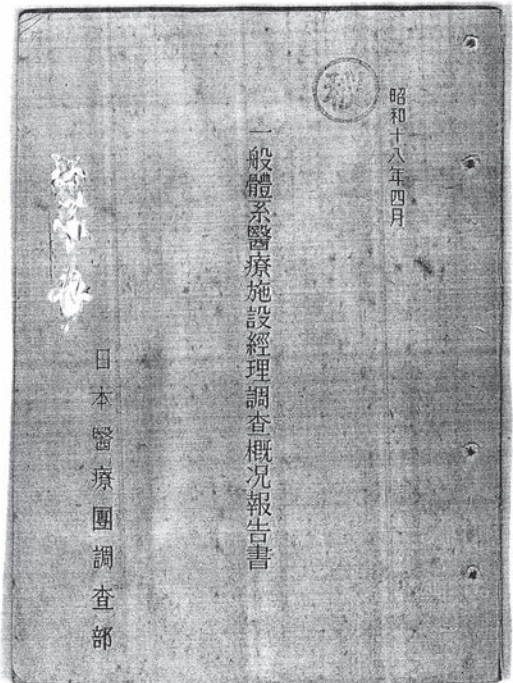 昭和十八年四月
秘
一般體系醫療施設經理調査概況報告書
日本醫療團調査部